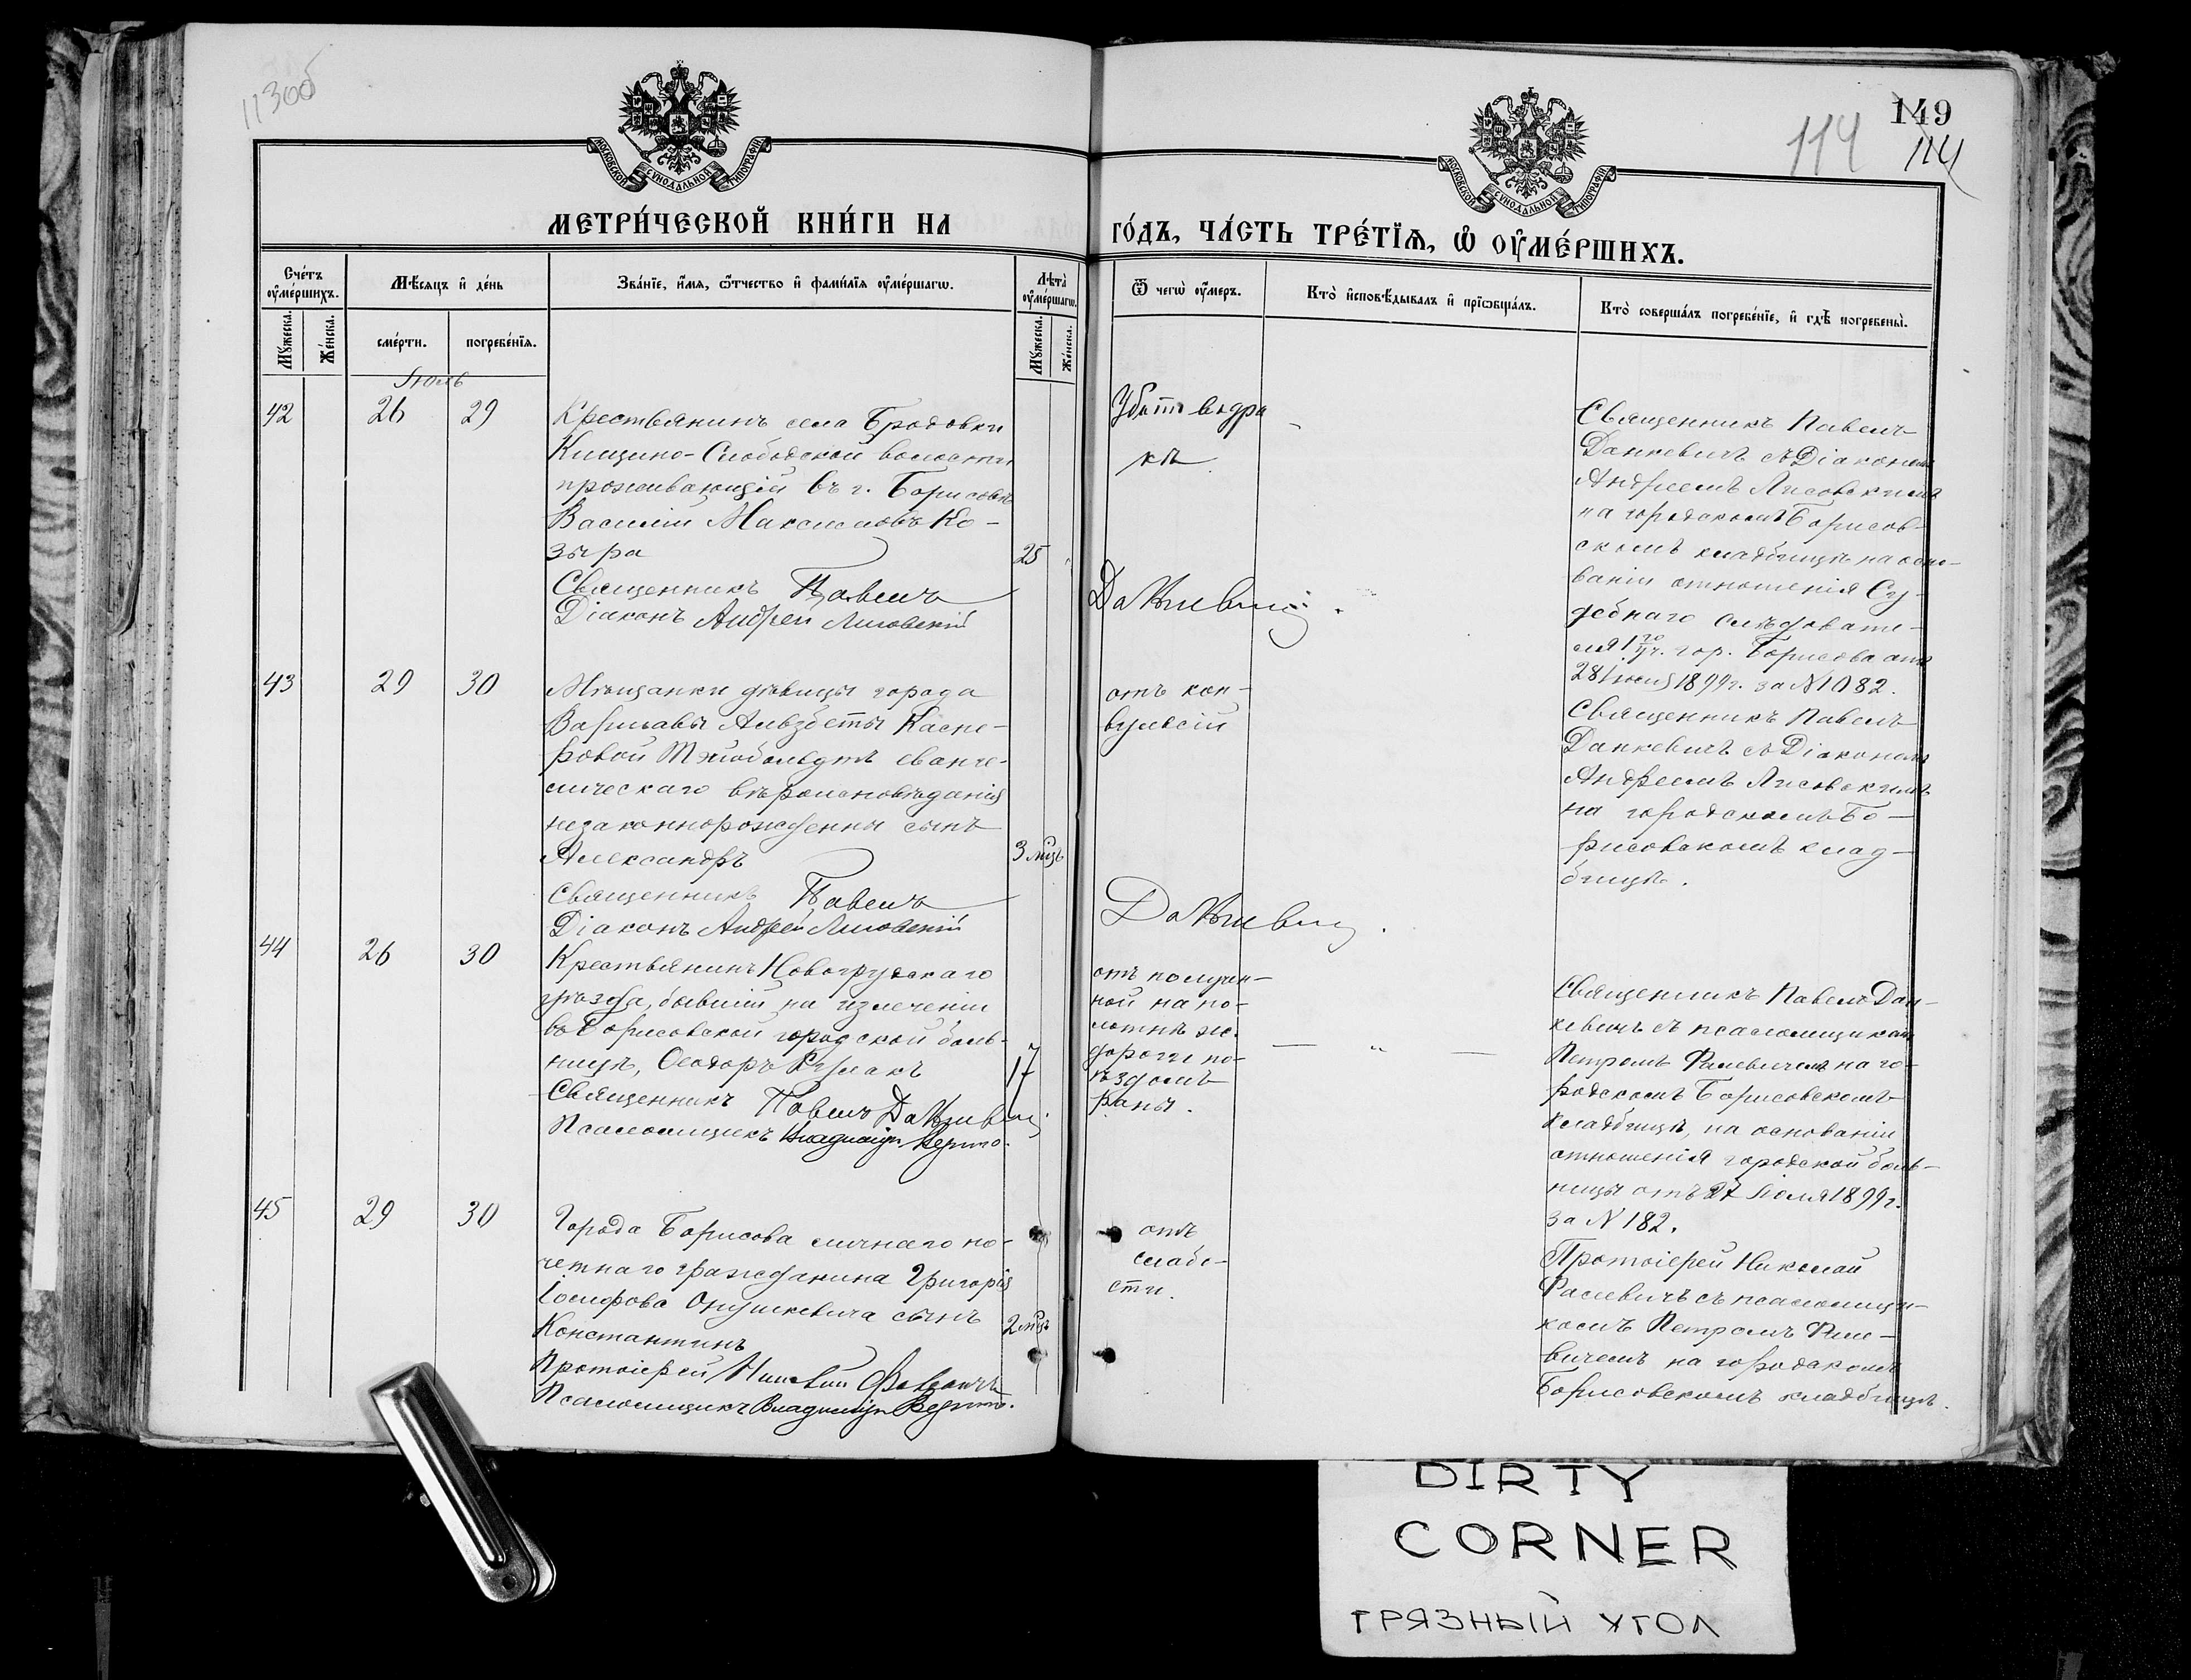 113об
149
114
114
МОСКОВСКОЙ СУНОДАЛЬНОЙ ТИПОГРАФІИ
МОСКОВСКОЙ СУНОДАЛЬНОЙ ТИПОГРАФІИ
МЕТРИ́ЧЕСКОЙ КНИ́ГИ НА
ГО́ДЪ, ЧА́СТЬ ТРЕ́ТЇѦ, Ѡ҆ ОУ҆МЕ́РШИХЪ.
Сче́тъ оу҆ме́ршихъ.
Мѣ́сѧцъ и҆ де́нь
Зва́нїе, и҆́мѧ, ѻ҆́тчество и҆ фами́лїѧ оу҆ме́ршагѡ.
Лѣ́та оу҆ме́ршагѡ.
Ѿ чегѡ̀ оу҆́меръ.
Кто̀ и҆сповѣ́дывалъ и҆ прїѡбща́лъ.
Кто̀ соверша́лъ погребе́нїе, и҆ гдѣ̀ погребены̀.
Мꙋ́жеска.
Же́нска.
сме́рти.
погребе́нїѧ.
Мꙋ́жеска.
Же́нска.
Іюль
42
26
29
Крестьянинъ села Бродовки
Кищино-Слободской волости
проживающій въ г. Борисовѣ
Василій Максимовъ Ко-
зыра
25
Священникъ Павелъ
Данкевичъ.
Діаконъ Андрей Лисовскій
Убитъ въ дра
кѣ.
Священникъ Павелъ
Данкевичъ съ Діакономъ
Андреемъ Лисовскимъ
на городскомъ Борисов-
скомъ кладбищѣ на осно-
ваніи отношенія Су-
дебнаго слѣдовате-
ля 1го уч. гор. Борисова отъ
28 Іюля 1899 г. за № 1082.
43
29
30
Мѣщанки дѣвицы города
Варшавы Альзбеты Каспе-
ровой еванге-
лическаго вѣроисповѣданія
незаконнорожденны сынъ
Александръ
3 мѣц
Священникъ Павелъ
Данкевичъ.
Діаконъ Андрей Лисовскій
отъ кон-
вульсій
Священникъ Павелъ
Данкевичъ съ Діакономъ
Андреемъ Лисовскимъ
на городскомъ Бо-
рисовскомъ клад-
бищѣ.
44
26
30
Крестьянинъ Новогрудскаго
уѣзда, бывшій на излеченіи
въ Борисовской городской боль-
ницѣ, Ѳеодоръ
17
Священникъ Павелъ Данкевичъ.
Псаломщикъ Владиміръ
отъ получен-
ной на по-
лотнѣ ж.
дороги по-
ѣздомъ
раны.
— „ —
Священникъ Павелъ Дан-
кевичъ съ псаломщикомъ
Петромъ Филевичемъ на го-
родскомъ Борисовскомъ
кладбищѣ, на основаніи
отношенія городской боль-
ницы отъ 27 Іюля 1899 г.
за № 182.
45
29
30
Города Борисова личнаго по-
четнаго гражданина Григорія
Іосифова Онушкевича сынъ
Константинъ
2 мѣц
Протоіерей Николай
Псаломщикъ Владиміръ
отъ
слабо-
сти.
Протоіерей Николай
съ псаломщи-
комъ Петромъ Филе-
вичемъ на городскомъ
Борисовскомъ кладбищѣ.
DIRTY
CORNER
ГРЯЗНЫЙ УГОЛ